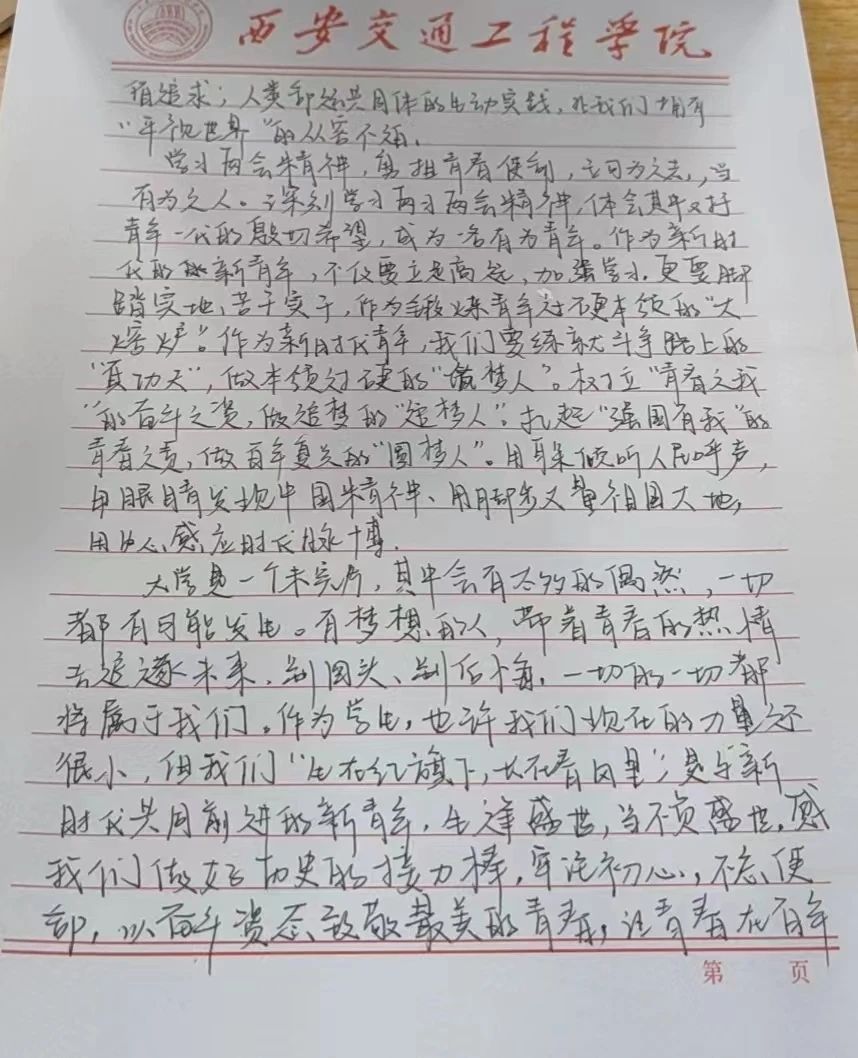 西安交通工程学院
追求；人类命运共同体的生动实践，让我们拥有
“平视世界”的从容不迫。
学习两会精神，勇担青春使命，可为之志，当
有为之人。深刻学习两会精神，体会其中对
青年一代的殷切希望，成为一名有为青年。作为新时
代的新青年，不仅要立志高远，加强学习，更要脚
踏实地、苦干实干，作为锻炼青年过硬本领的“大
熔炉”。作为新时代青年，我们要练就斗争路上的
“真功夫”，做本领过硬的“筑梦人”。树立“青春之我
”的奋斗之资，做追梦的“追梦人”；扎起“强国有我”的
青春之责，做百年复兴的“圆梦人”。用耳朵倾听人民呼声，
用眼睛发现中国精神、用脚步丈量祖国大地，
用心感应时代脉博。
大学是一个未完所，其中会有太多的偶然，一切
都有可能发生。有梦想的人，带着青春的热情
去追逐未来，别回头、别后悔，一切的一切都
将属于我们。作为学生，也许我们现在的力量还
很小，但我们“生在红旗下，长在春风里”，是与新
时代共同前进的新青年，生逢盛世，当不负盛世，愿
我们做好历史的接力棒，牢记初心，不忘使
命，以奋斗姿态致敬最美的青春，让青春在百年
第 页